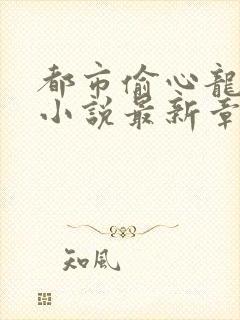 都市偷心龍
小說最新章
知風